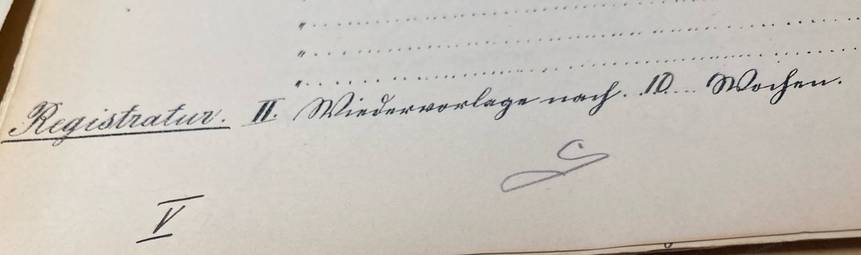 "
"
"
Registratur. II. Wiedervorlage nach 10 Wochen.
V